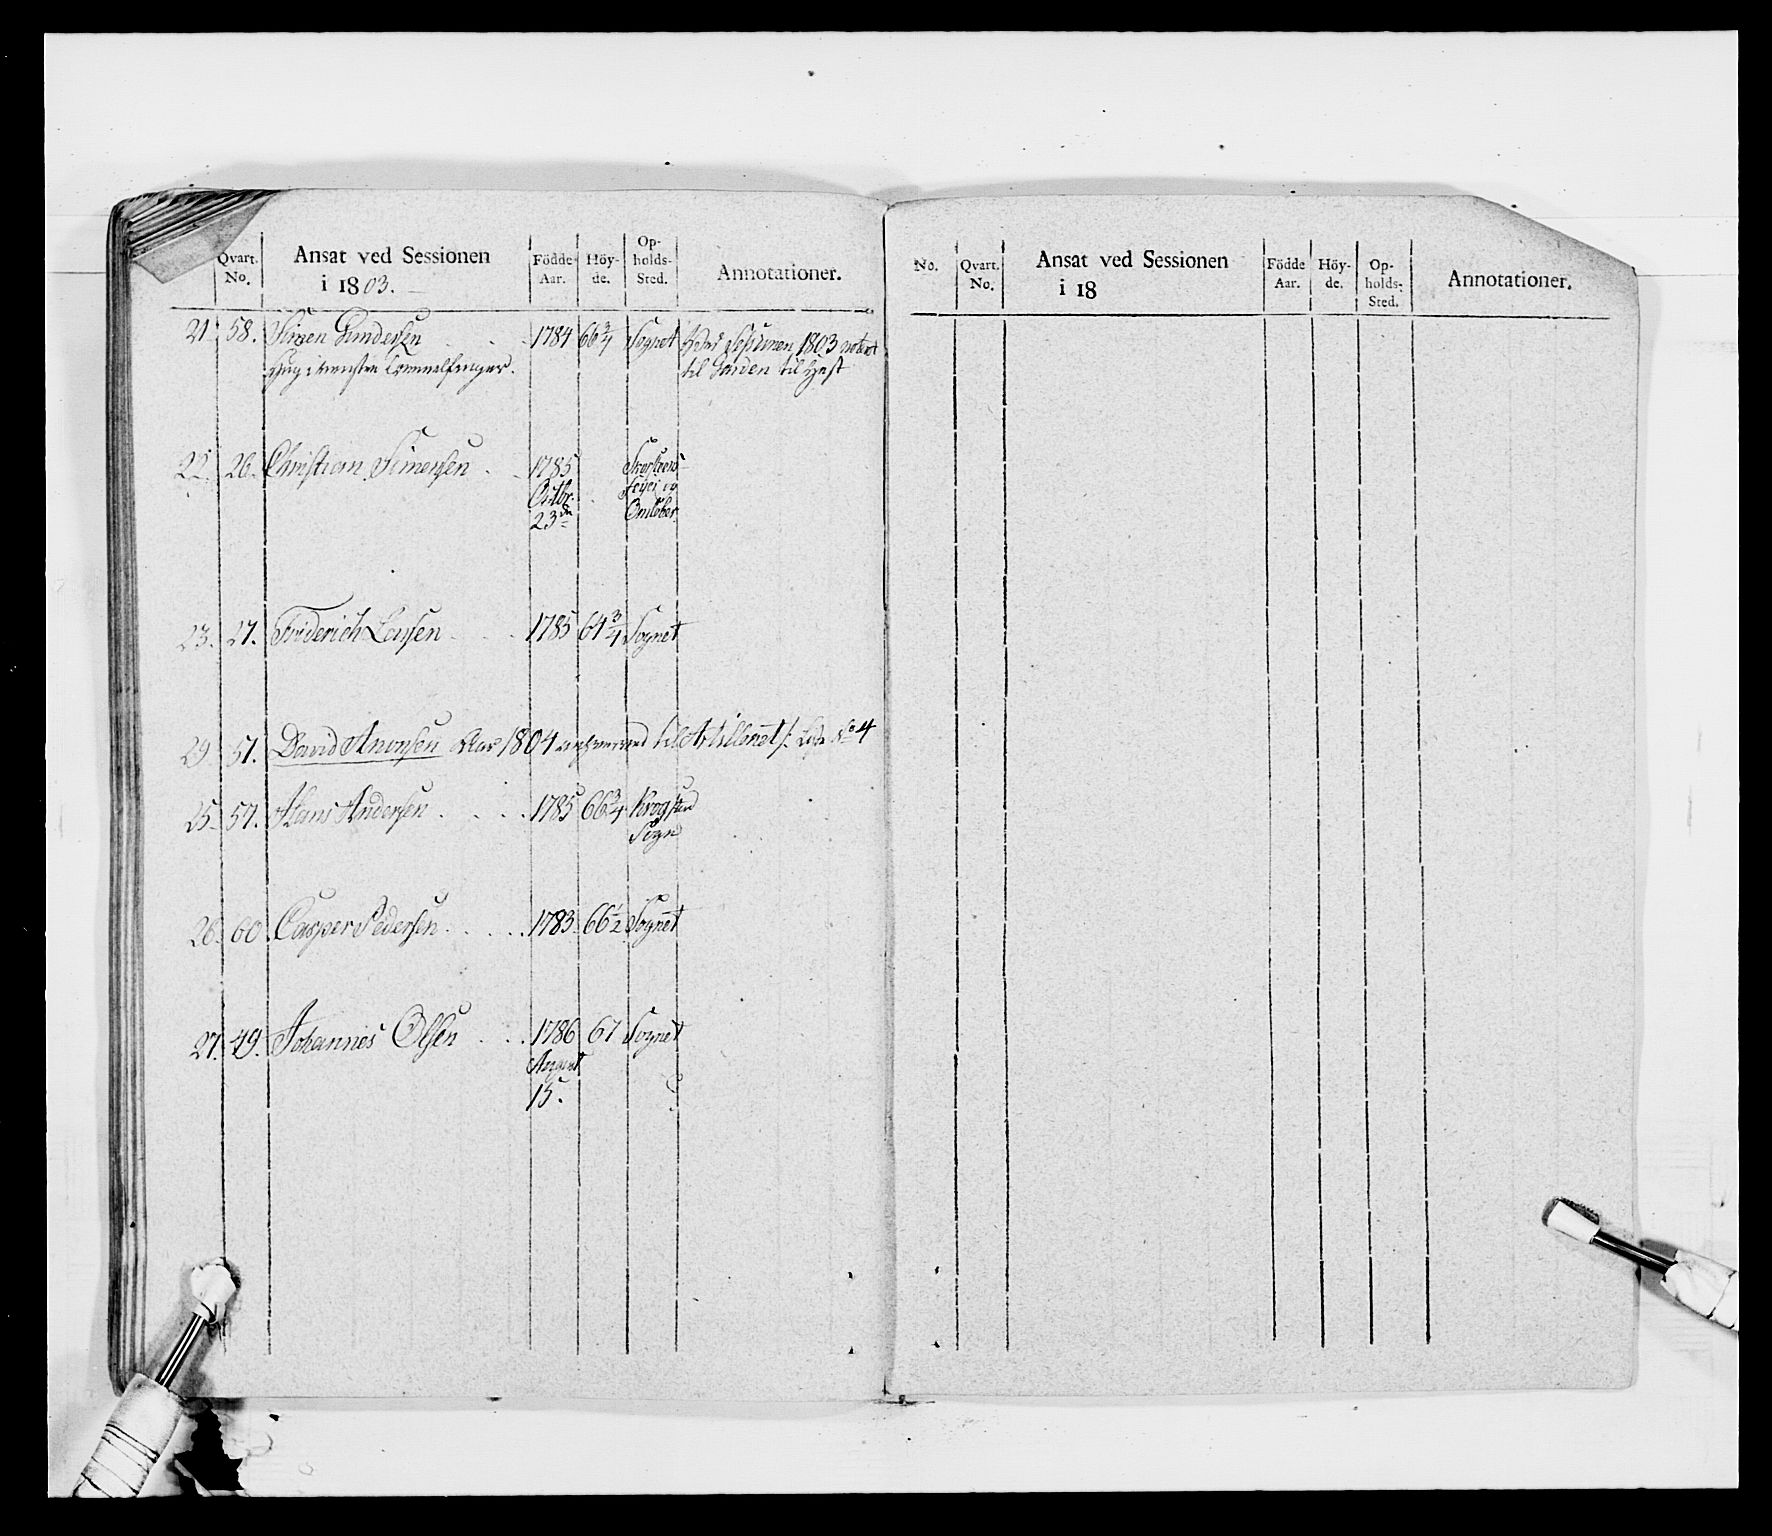 Qvart. No. Ansat ved Sessionen i 1803. Födde Aar. Höy-de. Op-holds-Sted. Annotationer.
21 58. Simen Gundersen 1784 66 3/4 Sognet Ved Sessionen 1803 noteret
Hug i venstre Tommelfinger. til Garden til Hest
22. 26. Christian Simensen 1785
Octbr.
23de Omløber
23. 27. Friderich Larsen 1785 64 3/4 Sognet
29 51. David Aronsen 1804 til Artilleriet No 4
25. 57. Hans Andersen 1785 66 3/4 Krogstad
Sogn
26. 60 Casper Pedersen 1783 66 1/2 Sognet
27. 49. Johannes Olsen 1786 67 Sognet
August
15.
No. Qvart. No. Ansat ved Sessionen i 18 Födde Aar. Höy-de. Op-holds-Sted. Annotationer.